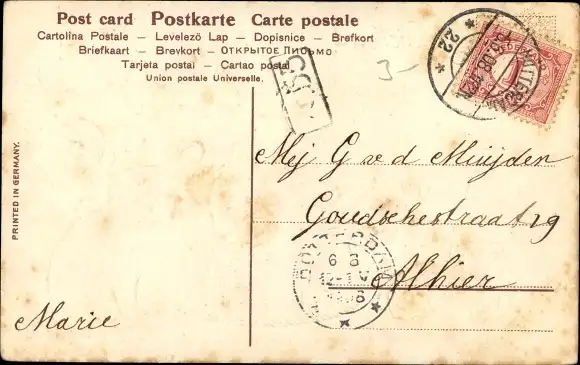 Post card Postkarte Carte postale
Cartolina Postale – Levelező Lap – Dopisnice – Brefkort
Briefkaart – Brevkort – ОТКРЫТОЕ ПИСЬМО
Tarjeta postal – Cartao postal
Union postale Universelle.
22
3-
PRINTED IN GERMANY.
Mej G v d Muijden
Goudschestraat 19
Alhier
ROTTERDAM
Marie